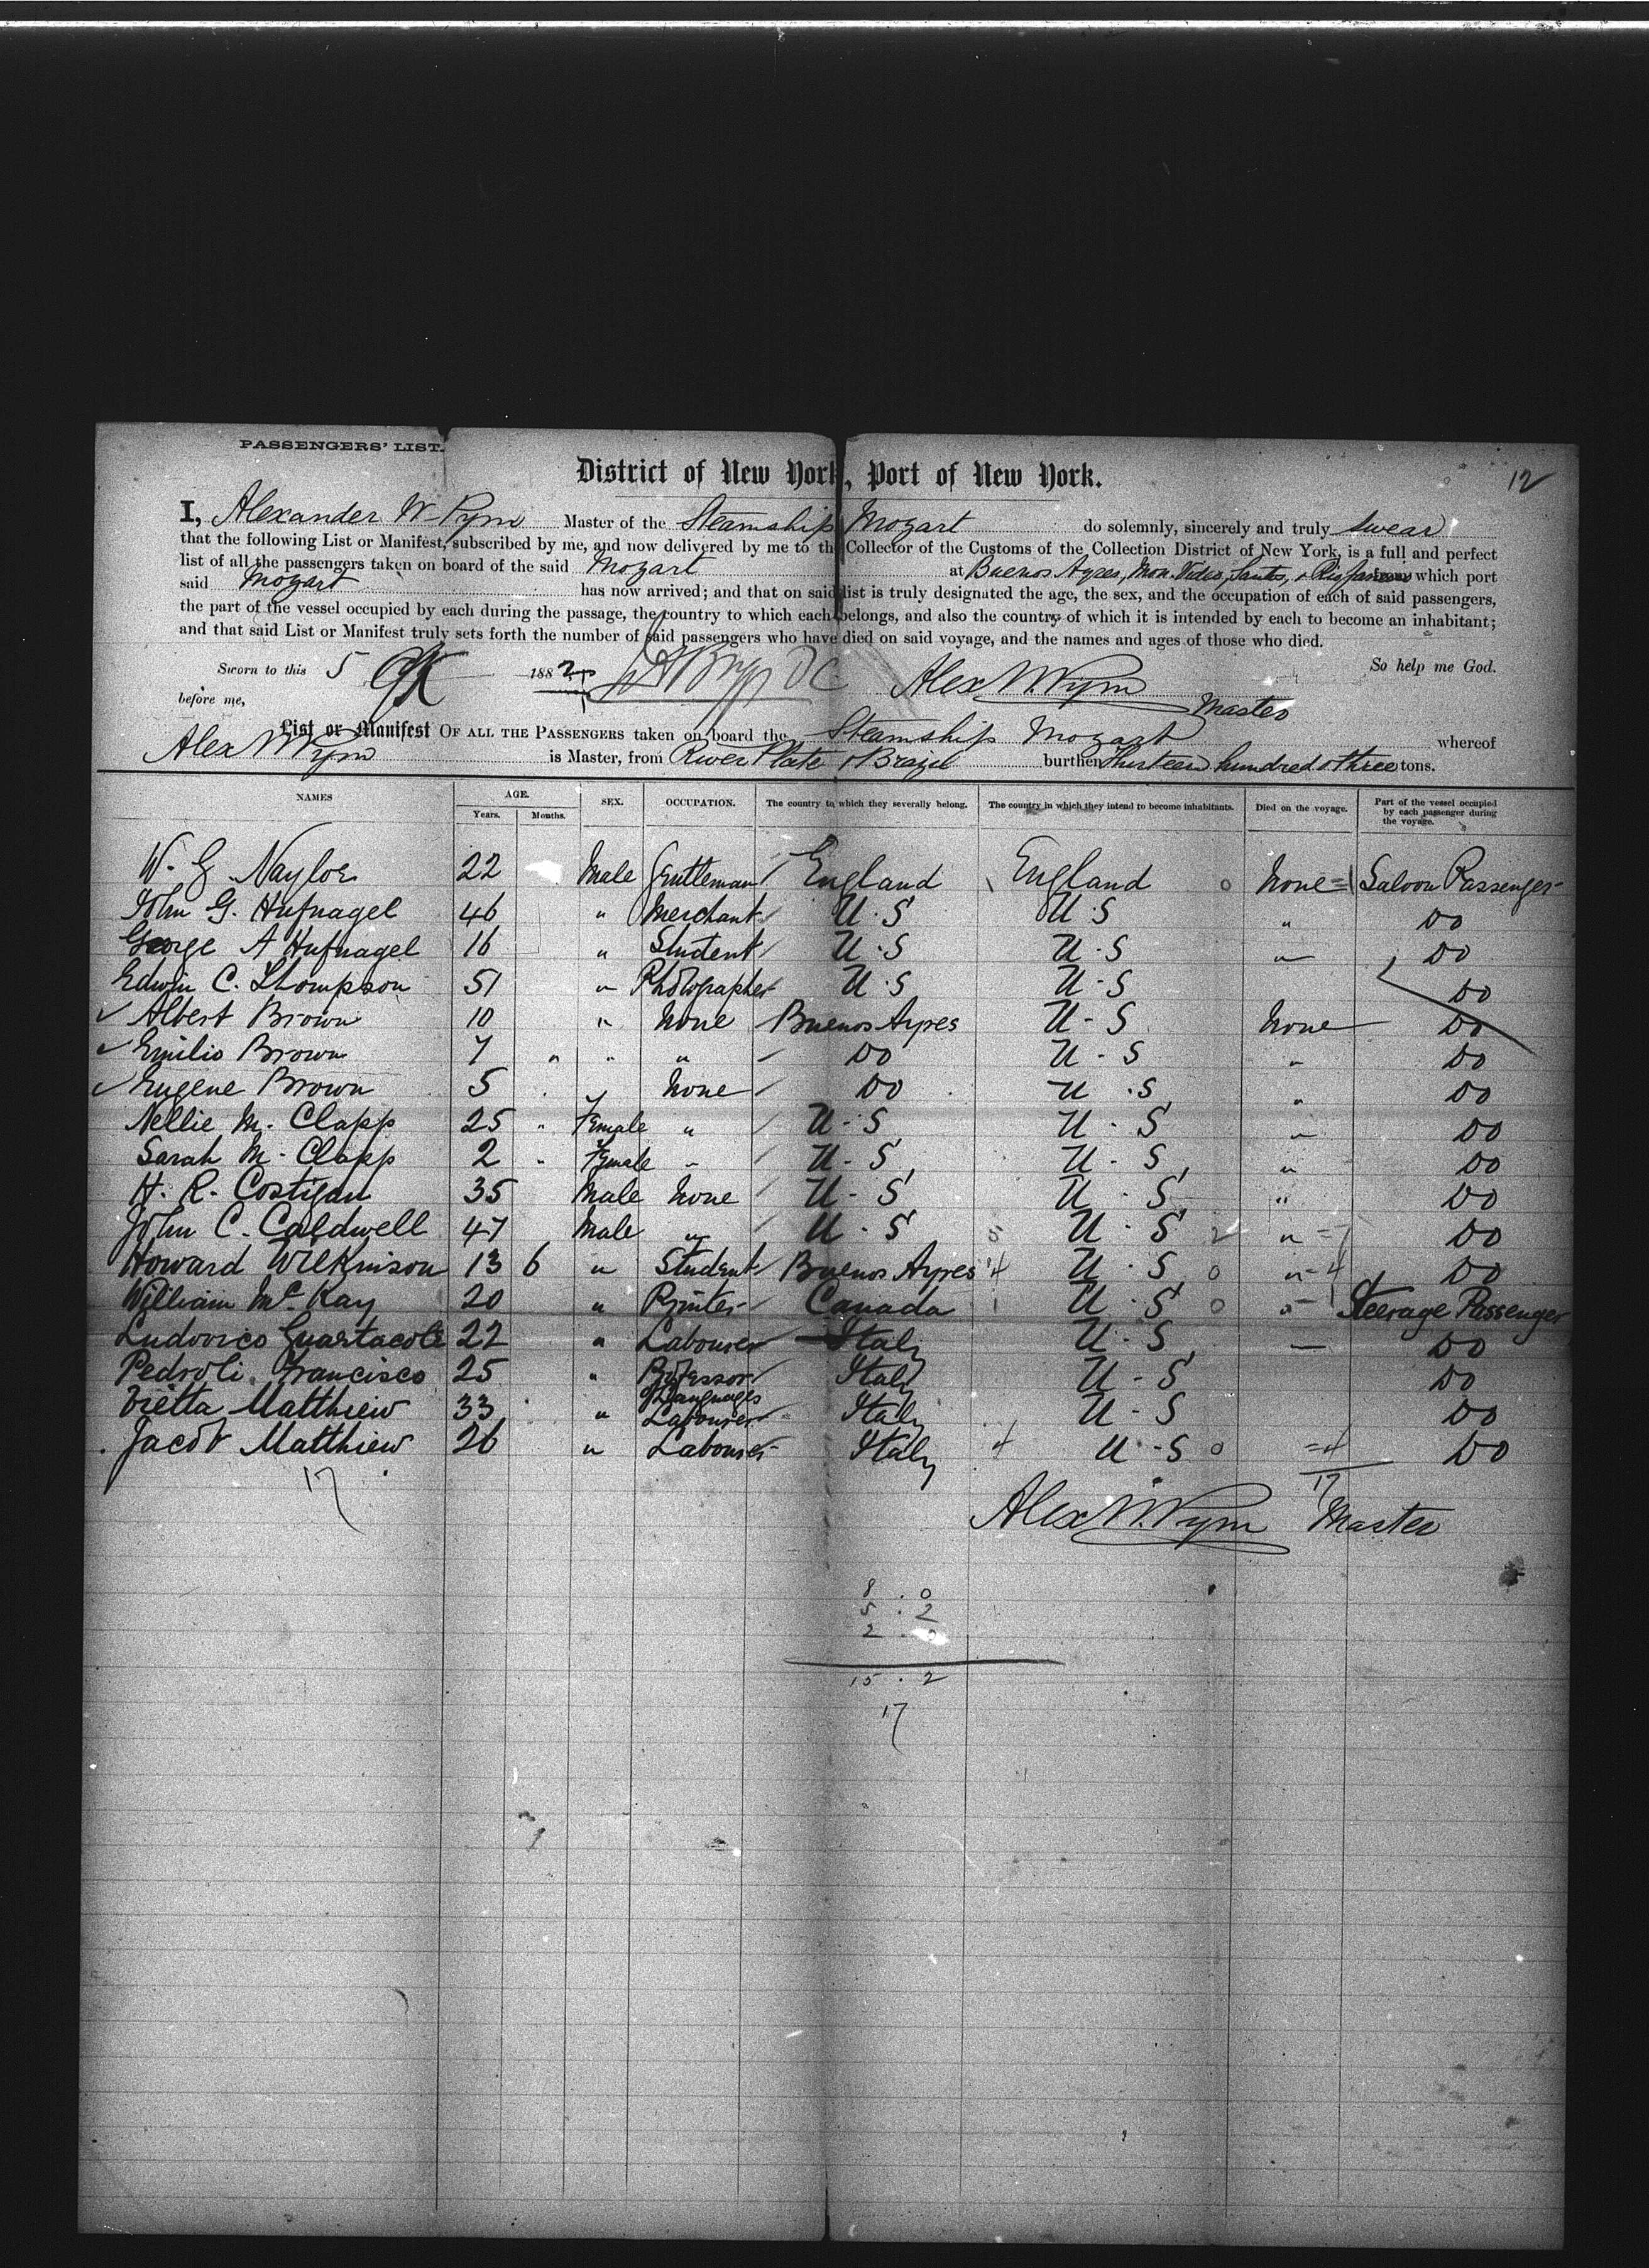 PASSENGERS' LIST.
District of New York, Port of New York.
12
I, Alexander W Pym Master of the Steamship Mozart do solemnly, sincerely and truly swear
that the following List or Manifest, subscribed by me, and now delivered by me to the Collector of the Customs of the Collection District of New York, is a full and perfect
list of all the passengers taken on board of the said Mozart at Buenos Ayres, Mon. Video, Santos, & Rio Janeiro from which port
said Mozart has now arrived; and that on said list is truly designated the age, the sex, and the occupation of each of said passengers,
the part of the vessel occupied by each during the passage, the country to which each belongs, and also the country of which it is intended by each to become an inhabitant;
and that said List or Manifest truly sets forth the number of said passengers who have died on said voyage, and the names and ages of those who died.
Sworn to this 5 188 So help me God.
before me, Alex W. Pym Master
List or Manifest OF ALL THE PASSENGERS taken on board the Steamship Mozart whereof
Alex W Pym is Master, from River Plate & Brazil burthen Thirteen hundred & three tons.
NAMES AGE. Years. Months. SEX. OCCUPATION. The country to which they severally belong. The country in which they intend to become inhabitants. Died on the voyage. Part of the vessel occupied by each passenger during the voyage.
W. G. Naylor 22 Male Gentleman England England 0 None = 1 Saloon Passenger
John G. Hufnagel 46 " Merchant U.S U.S " Do
George A Hufnagel 16 " Student U.S U.S " Do
Edwin C. Thompson 51 " Photographer U.S U-S Do
Albert Brown 10 " None Buenos Ayres U-S None Do
Emilio Brown 7 " " " Do U-S " Do
Eugene Brown 5 " None Do U.S " Do
Nellie M. Clapp 25 " Female " U.S U.S " Do
Sarah M. Clapp 2 " Female " U-S U-S " Do
H. R. Costigan 35 Male None U-S U.S " Do
John C. Caldwell 47 Male " U.S 8 U.S 2 " = 7 Do
Howard Wilkinson 13 6 " Student Buenos Ayres 4 U.S 0 " = 4 Do
William Mc Kay 20 " Printer Canada 1 U.S 0 " - 1 Steerage Passenger
Ludovico Guartacote 22 " Labourer Italy U-S Do
Pedroli Francisco 25 " Professor of Languages Italy U-S Do
Vietta Matthiew 33 " Labourer Italy U-S Do
Jacob Matthiew 26 " Labourer Italy 4 U-S 0 = 4 Do
17 17
Alex W. Pym Master
8 . 0
5 . 2
2 .
15 . 2
17